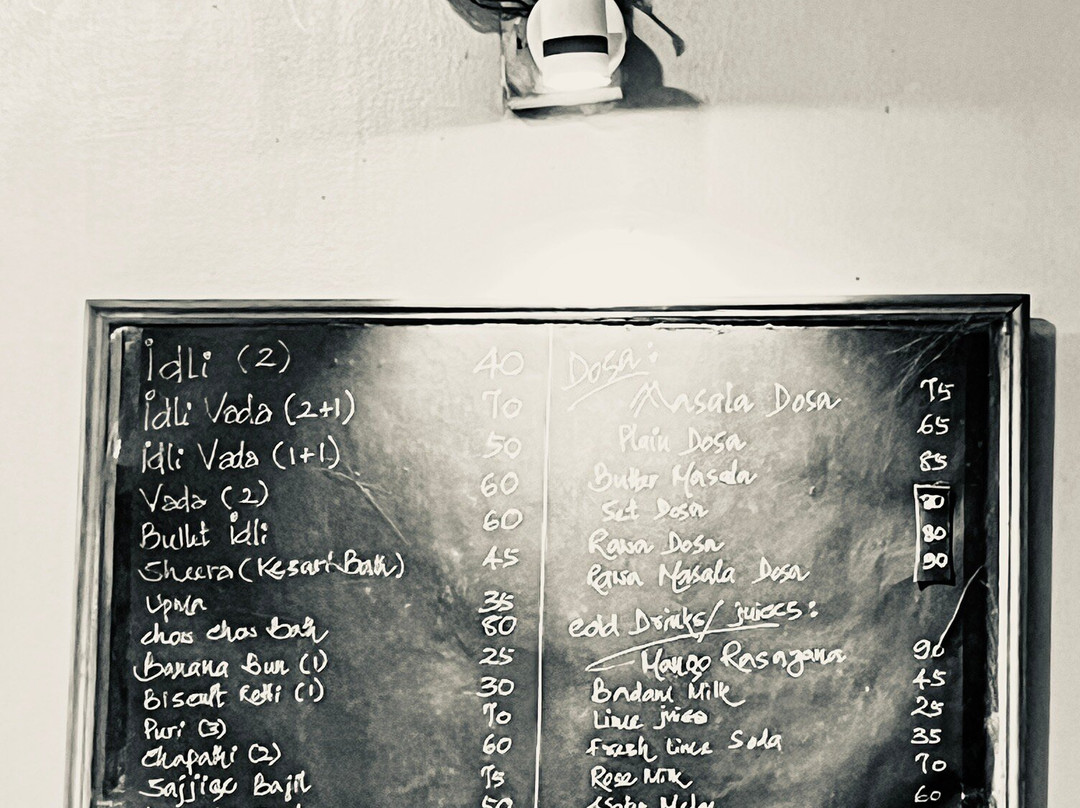 Idli (2) 40
Idli Vada (2+1) 70
Idli Vada (1+1) 50
Vada (2) 60
Bullet Idli 60
Sheera (Kesari Bath) 45
Upma 35
chow chow Bath 80
Banana Bun (1) 25
Biscuit Rotti (1) 30
Puri (3) 70
Chapathi (2) 60
Sajjige Bajil 75
50
Dosa:
Masala Dosa 75
Plain Dosa 65
Butter Masala 85
Set Dosa
Rawa Dosa 80
Rawa Masala Dosa 90
Cold Drinks/ juices:
Mango Rasayana 90
Badam Milk 45
Lime juice 25
Fresh Lime Soda 35
Rose Milk 70
60